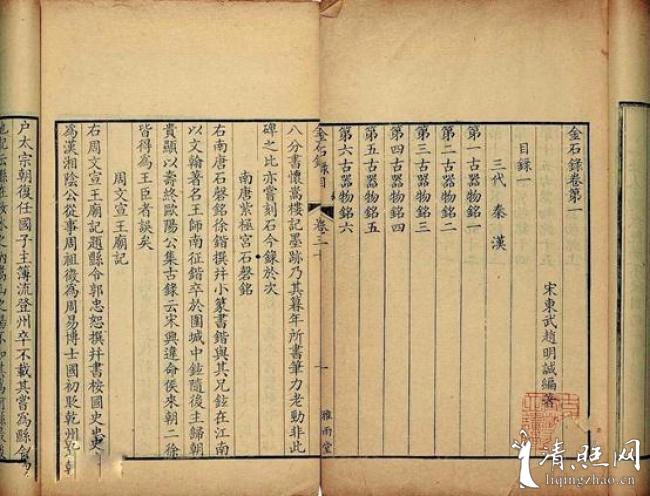 金石錄卷第一
宋東武趙明誠編著
目錄一
三代 秦 漢
第一古器物銘一
第二古器物銘二
第三古器物銘三
第四古器物銘四
第五古器物銘五
第六古器物銘六
雅雨堂
金石錄
卷三十
八分書懷嵩樓記墨跡乃其暮年所書筆力老勁非此
碑之比亦嘗刻石今錄於次
南唐紫極宮石磬銘
右南唐石磬銘徐鍇撰幷小篆書鍇與其兄鉉在江南
以文翰著名王師南征鍇卒於圍城中鉉隨後主歸朝
貴顯以壽終歐陽公集古錄云宋興違命侯來朝二徐
皆得爲王臣者誤矣
周文宣王廟記
右周文宣王廟記題縣令郭忠恕撰幷書桉國史
爲漢湘陰公從事周祖徵爲周易博士國初貶乾州
戶太宗朝復任國子主簿流登州卒不載其嘗爲縣令
清照网
liqingzhao.cn